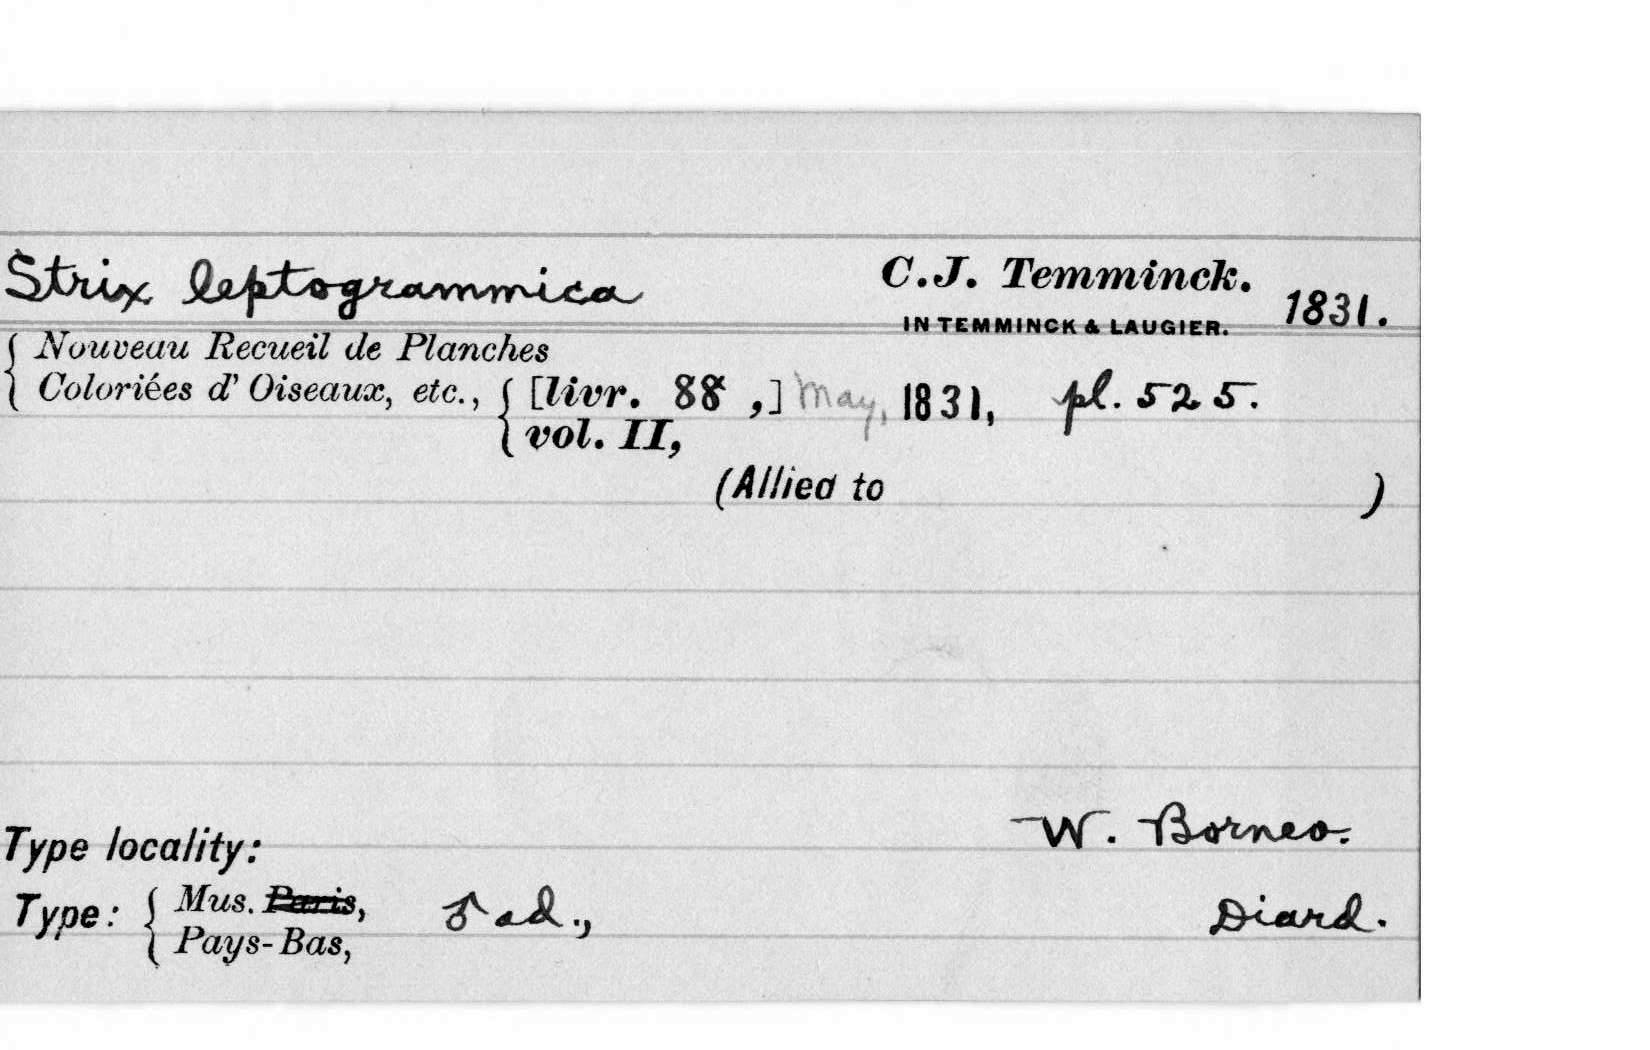 Strix leptogrammica C.J. Temminck. 1831.
IN TEMMINCK & LAUGIER.
Nouveau Recueil de Planches
Coloriées d'Oiseaux, etc., [livr. 88 ,] May, 1831, pl. 525.
vol. II,
(Allied to )
Type locality: W. Borneo.
Type: Mus. Paris, ♂ ad., Diard.
Pays-Bas,